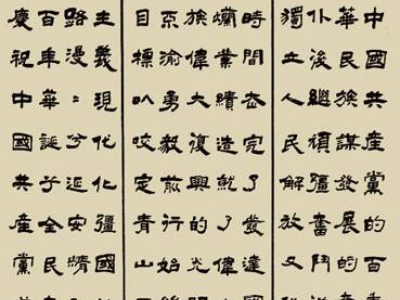 中國共産黨的百
華民族謀發展的
仆後繼頑彊奮鬥
獨立人民解放又
時間走完了發達國
爛業績造就了偉
族偉大復興的光
不渝勇毅前行始
目標以咬定青山
主義現代化彊國
路漫〻兮延安
百年華誕全民
慶祝中國共産黨